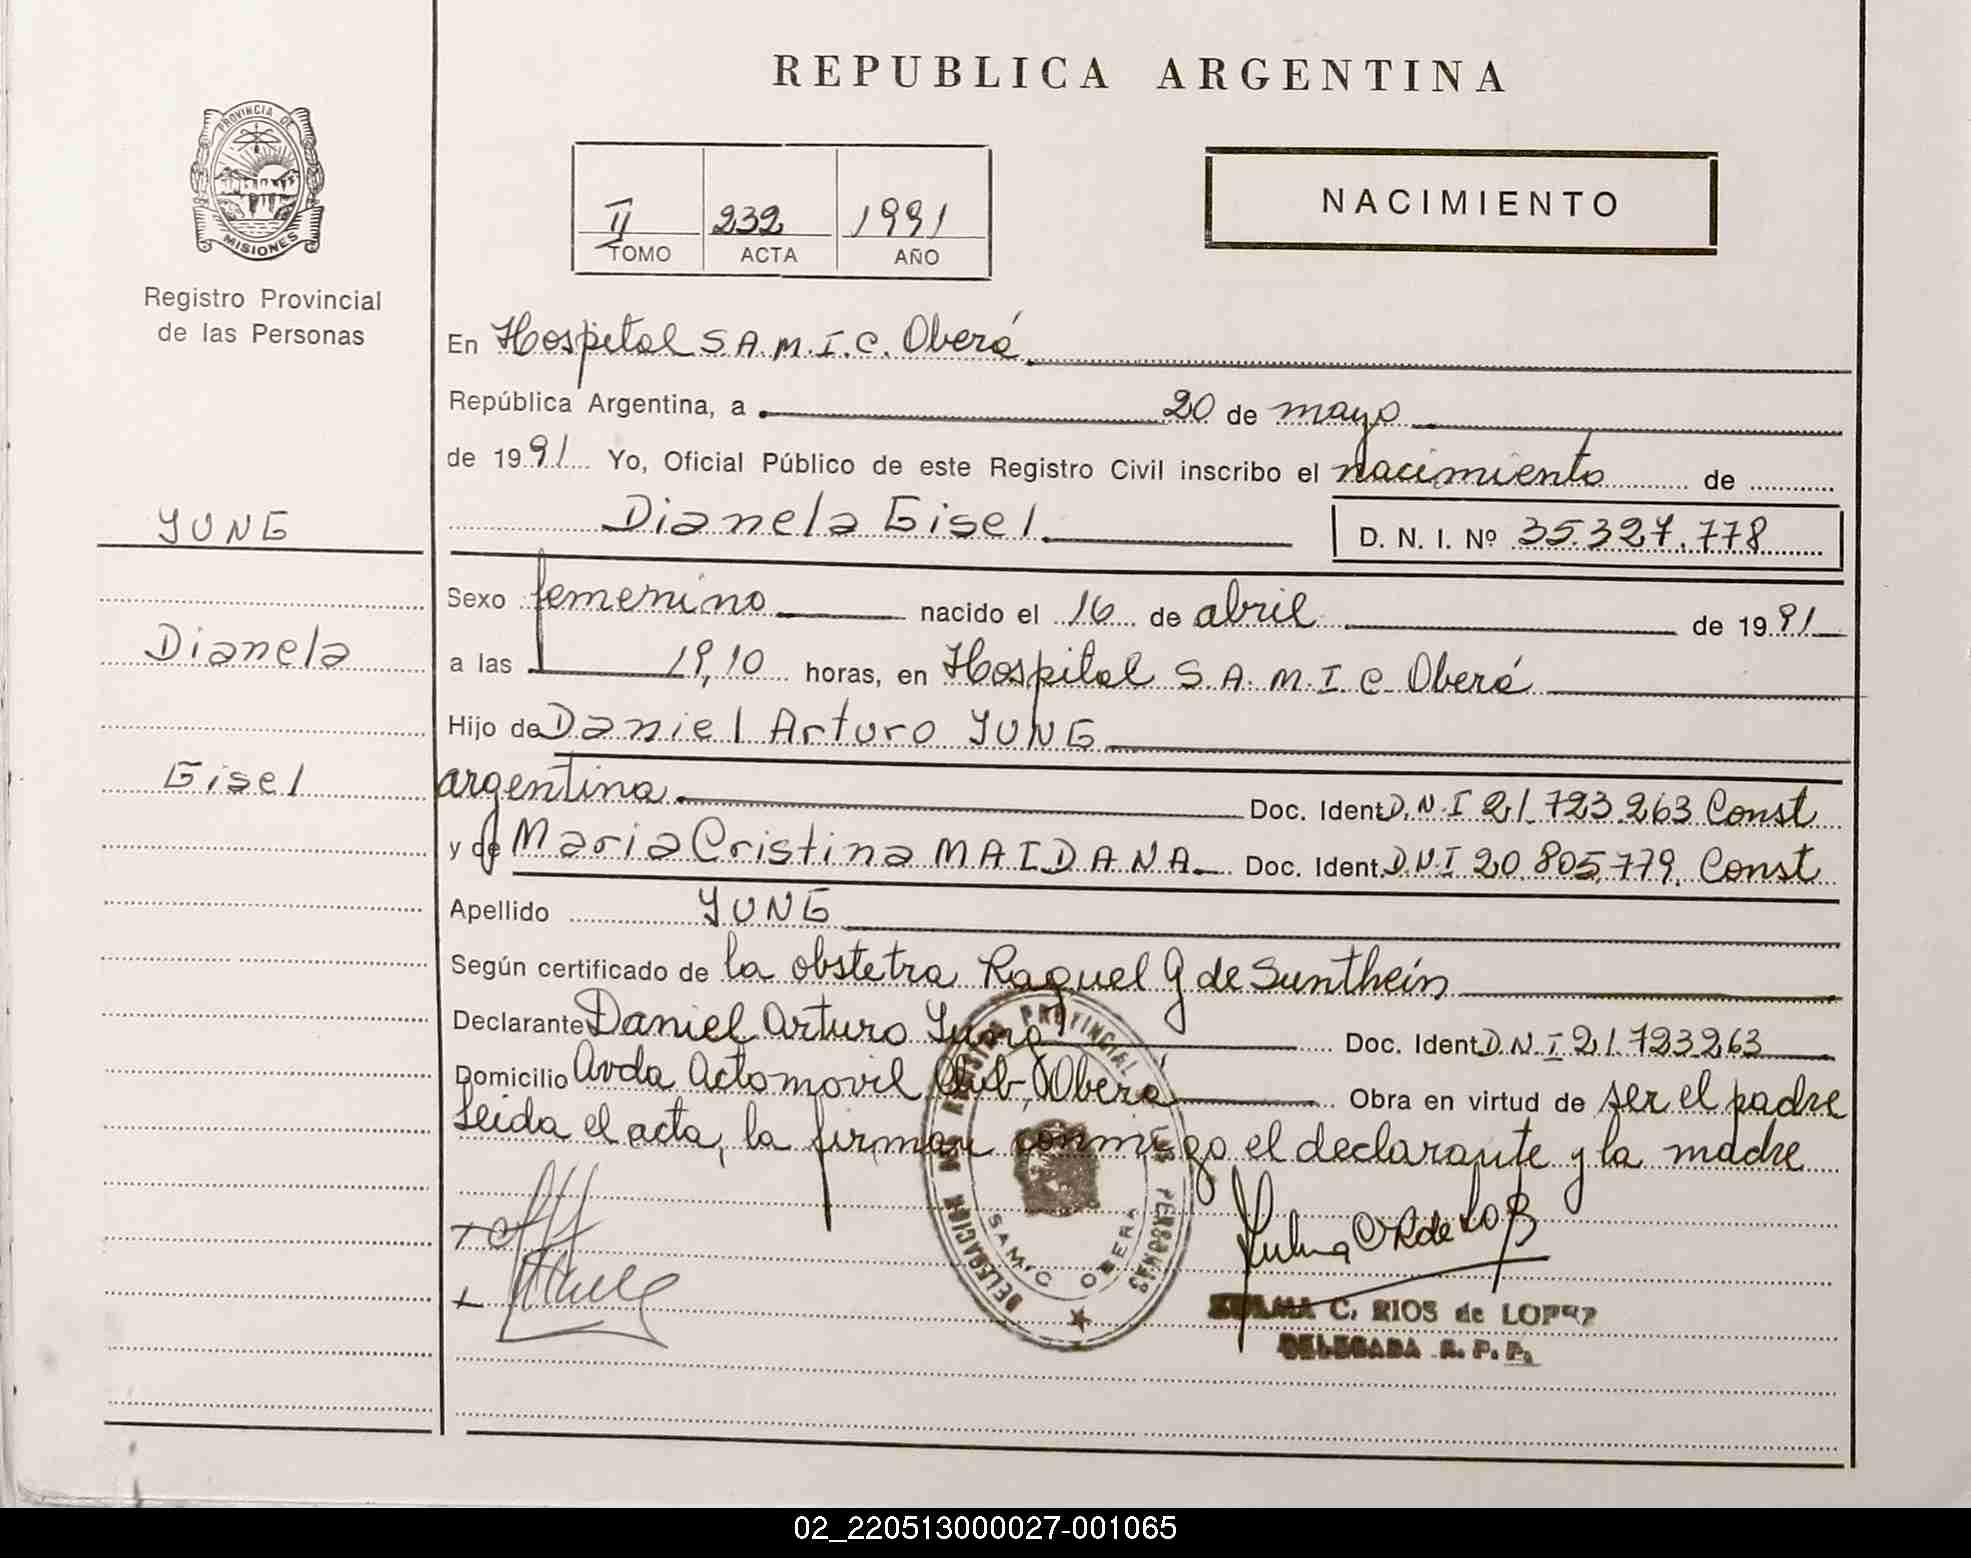 REPUBLICA ARGENTINA
PROVINCIA DE MISIONES
Registro Provincial
de las Personas
II 232 1991
TOMO ACTA AÑO
NACIMIENTO
En Hospital S.A.M.I.C. Oberá
República Argentina, a 20 de mayo
de 1991 Yo, Oficial Público de este Registro Civil inscribo el nacimiento de
Dianela Gisel D. N. I. Nº 35.327.778
YUNG
Dianela
Gisel
Sexo femenino nacido el 16 de abril de 1991
a las 19,10 horas, en Hospital S.A.M.I.C. Oberá
Hijo de Daniel Arturo YUNG
argentina Doc. Ident. D.N.I 21.723.263 Const
y de Maria Cristina MAIDANA Doc. Ident. D.N.I 20.805.779. Const
Apellido YUNG
Según certificado de la obstetra Raquel G de Sunthein
Declarante Daniel Arturo Yung Doc. Ident. D.N.I 21.723263
Domicilio Avda Actomovil Club, Oberá Obra en virtud de ser el padre
Leida el acta, la firman conmigo el declarante y la madre
DELEGACION DE REGISTRO PROVINCIAL DE LAS PERSONAS
SAMIC OBERA
ZULMA C. RIOS de LOPEZ
DELEGADA R. P. P.
02_220513000027-001065